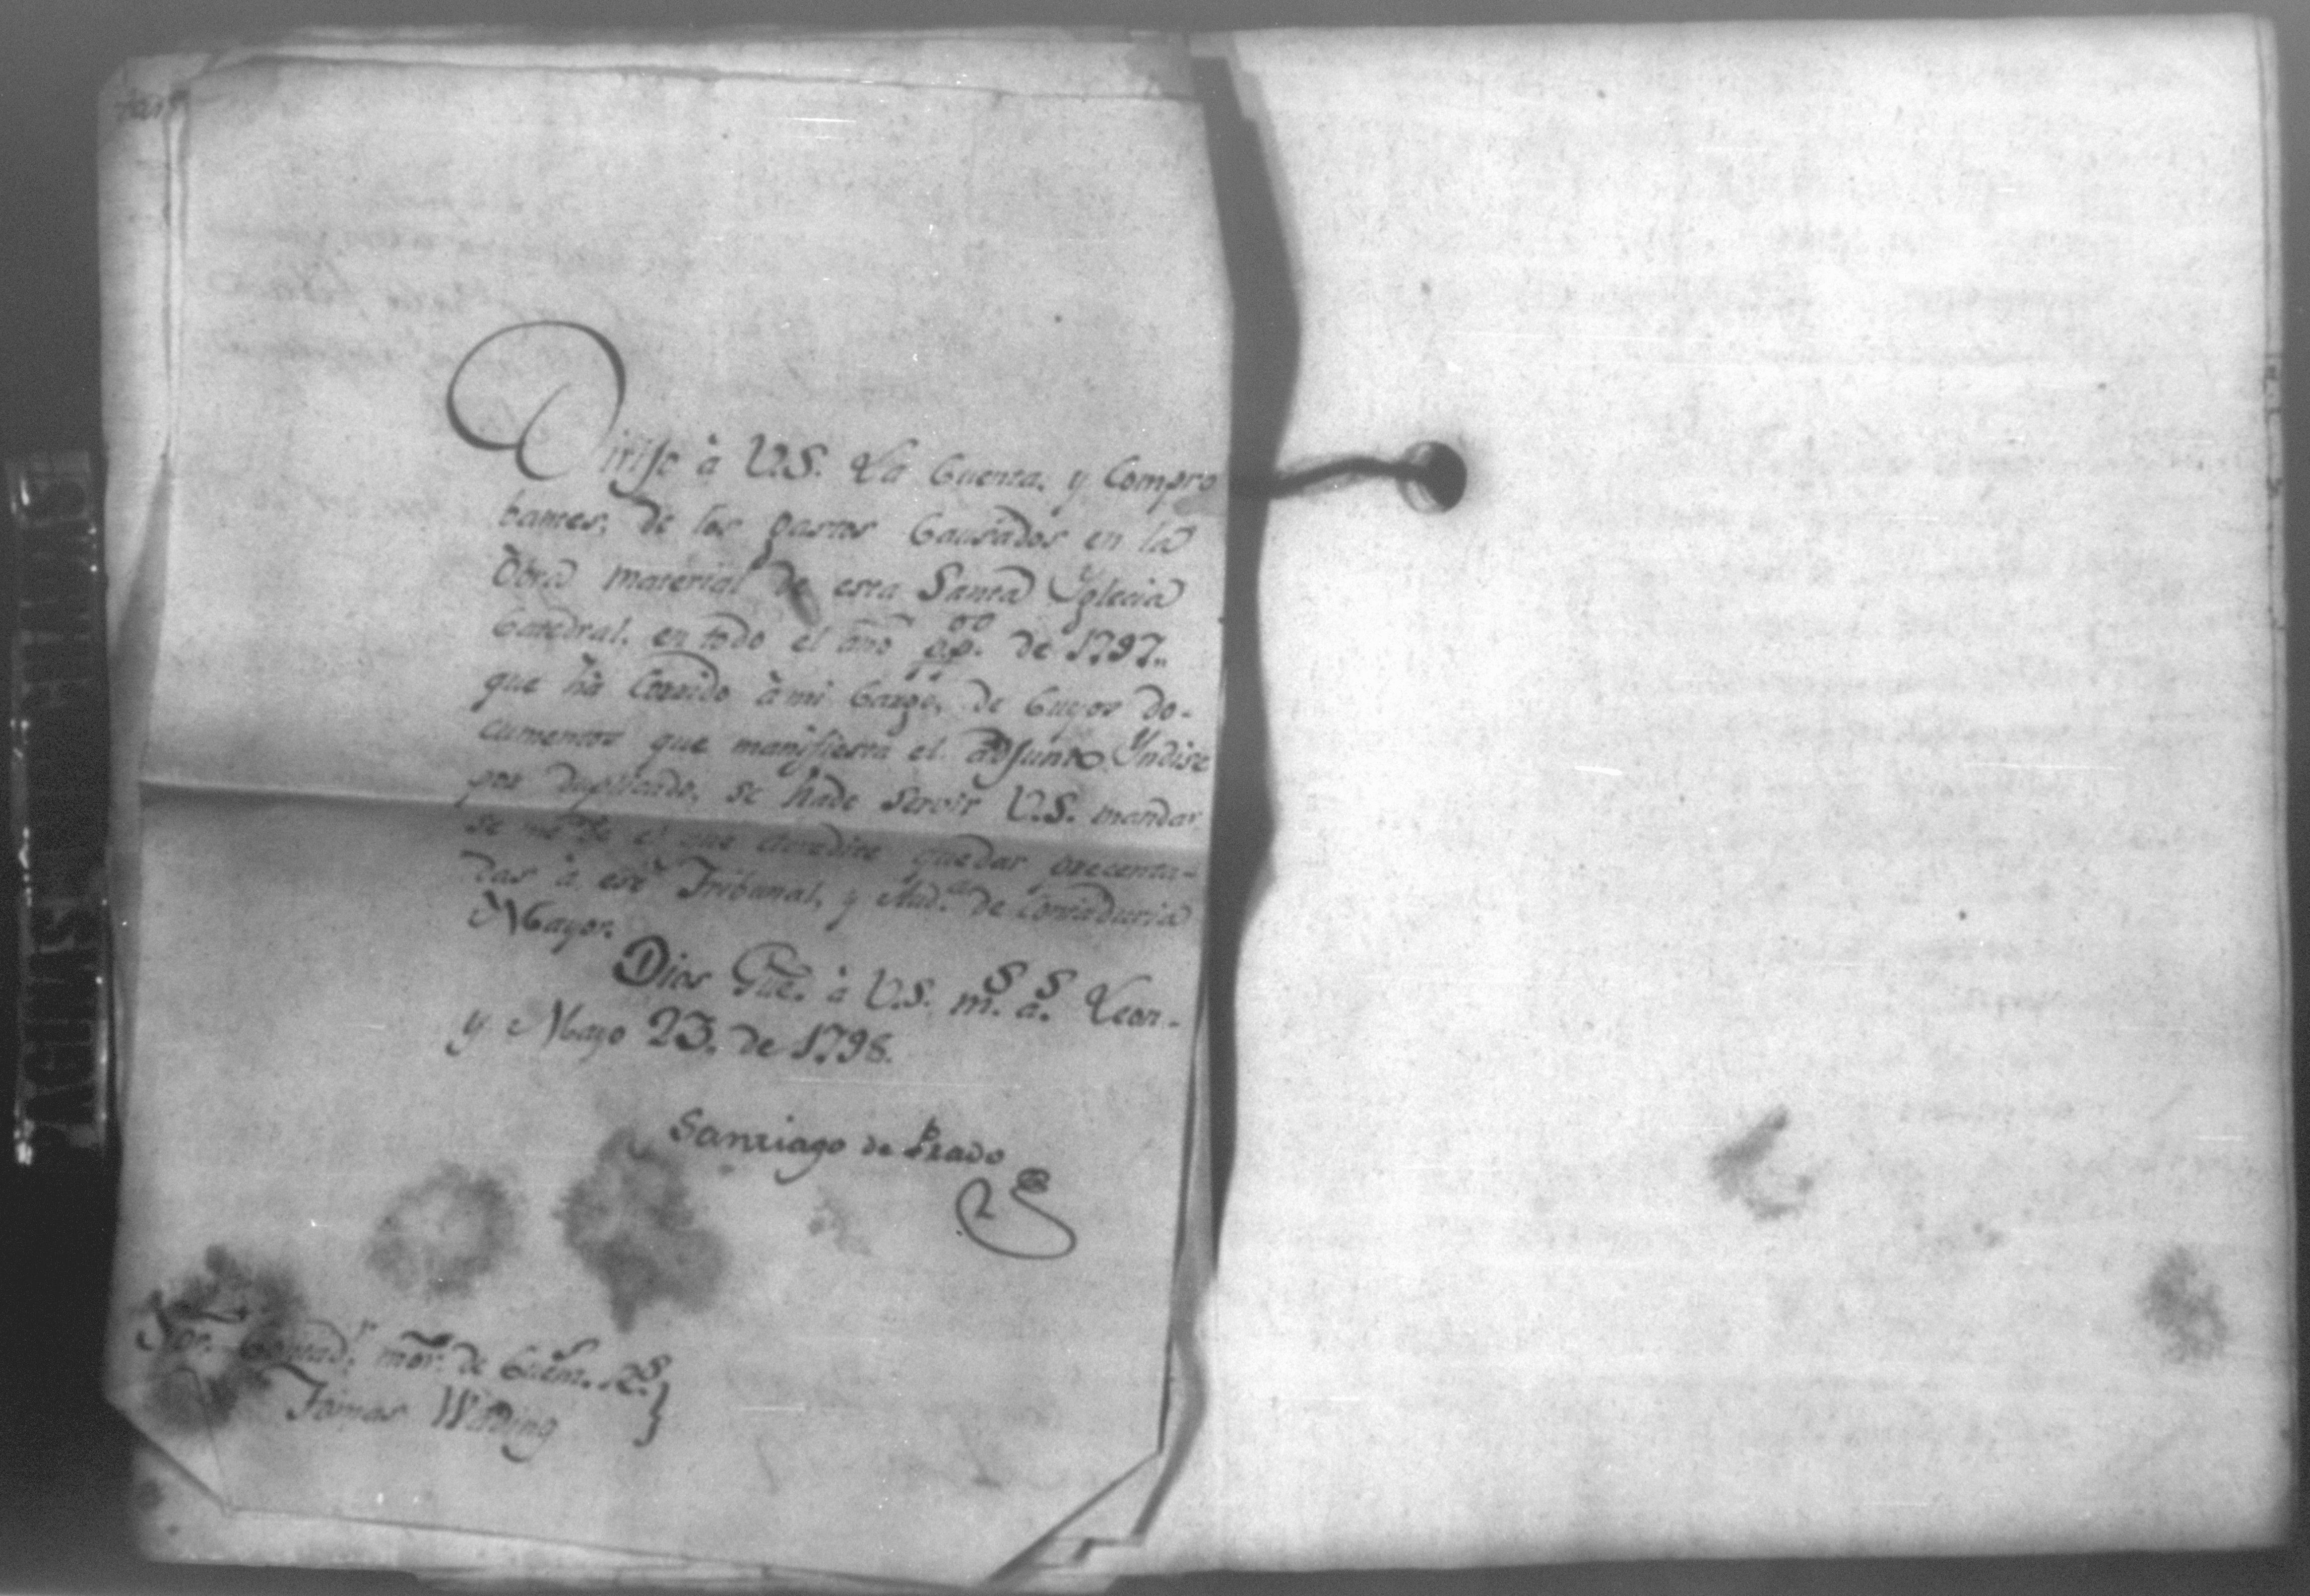 Dirijo à V.S. La Cuenta, y Compro
bantes, de los gastos Causados en la
Obra material de esta Santa Yglecia
Catedral, en todo el año p.p.do de 1797.,
que ha Corrido à mi Cargo, de Cuyos do-
cumentos que manifiesta el adjunto Yndise
por duplicado, se hade Servir V.S. mandar
se me dé el que acredite quedar precenta-
das à ese Tribunal, y Aud.a de Contaduria
Mayor.
Dios Gue. à V.S. m.s a.s Leon-
y Mayo 23. de 1798.
Santiago de Prado
Sor. Contad.r mor. de Cuen.s R.s
Tomas Wading
PAGINAS